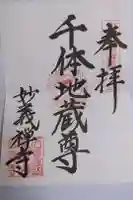 奉拝
千体地蔵尊
妙義禅寺